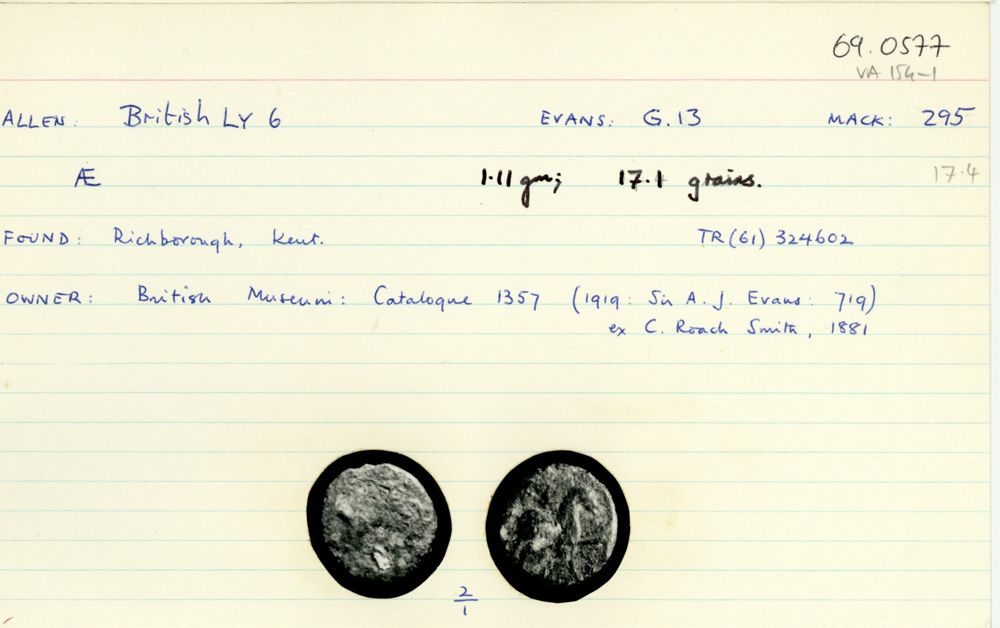 69.0577
VA 154-1
ALLEN: British LY 6 EVANS: G.13 MACK: 295
Æ 1.11 gm; 17.1 grains. 17.4
FOUND: Richborough, Kent. TR(61) 324602
OWNER: British Museum: Catalogue 1357 (1919: Sir A. J. Evans: 719)
ex C. Roach Smith, 1881
2
1